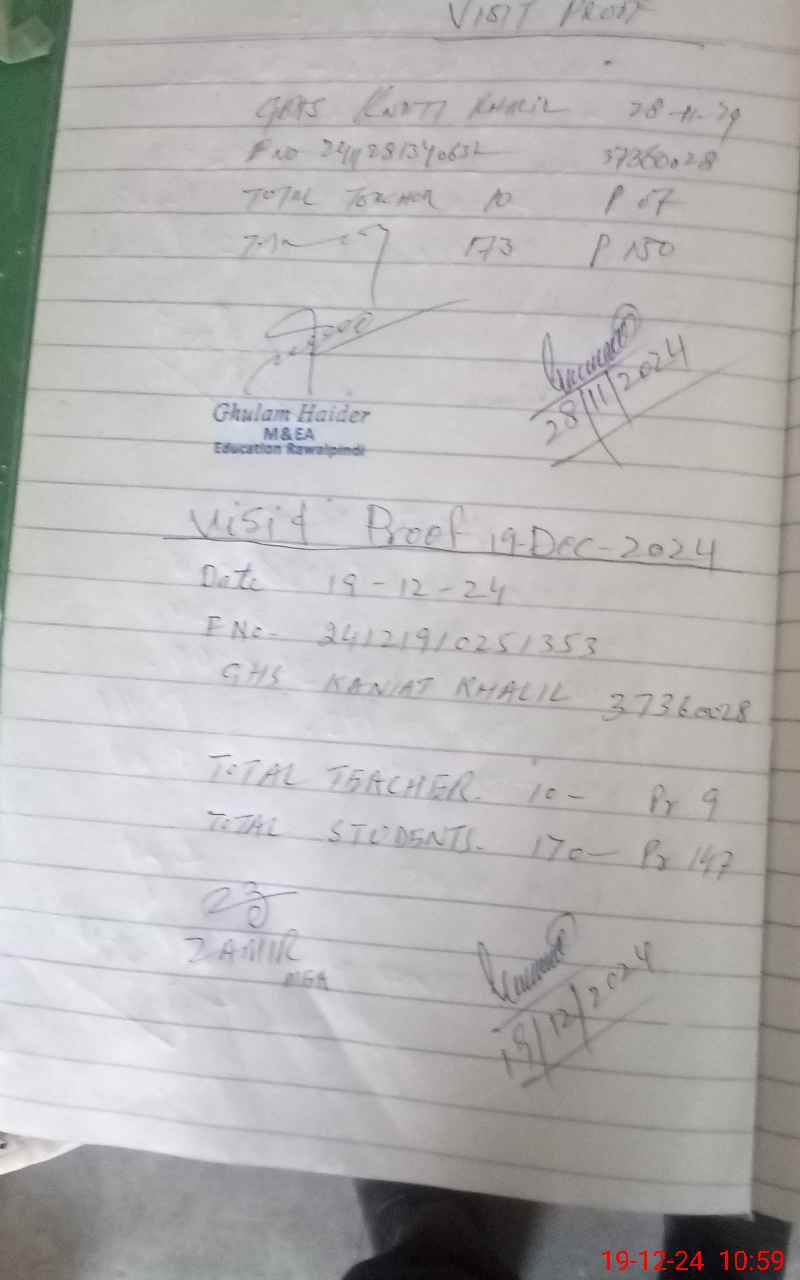 VISIT PROOF
GHS KHALIL 28-11-24
F NO 37360028
TOTAL TEACHER 10 P 07
173 P 150
28/11/2024
Ghulam Haider
M&EA
Education Rawalpindi
Visit Proof 19-Dec-2024
Date 19-12-24
F No- 24121910251353
GHS KANIAT KHALIL 37360028
TOTAL TEACHER. 10- Pr 9
TOTAL STUDENTS. 170- Pr 147
ZAMIR
MEA
19/12/2024
19-12-24 10:59